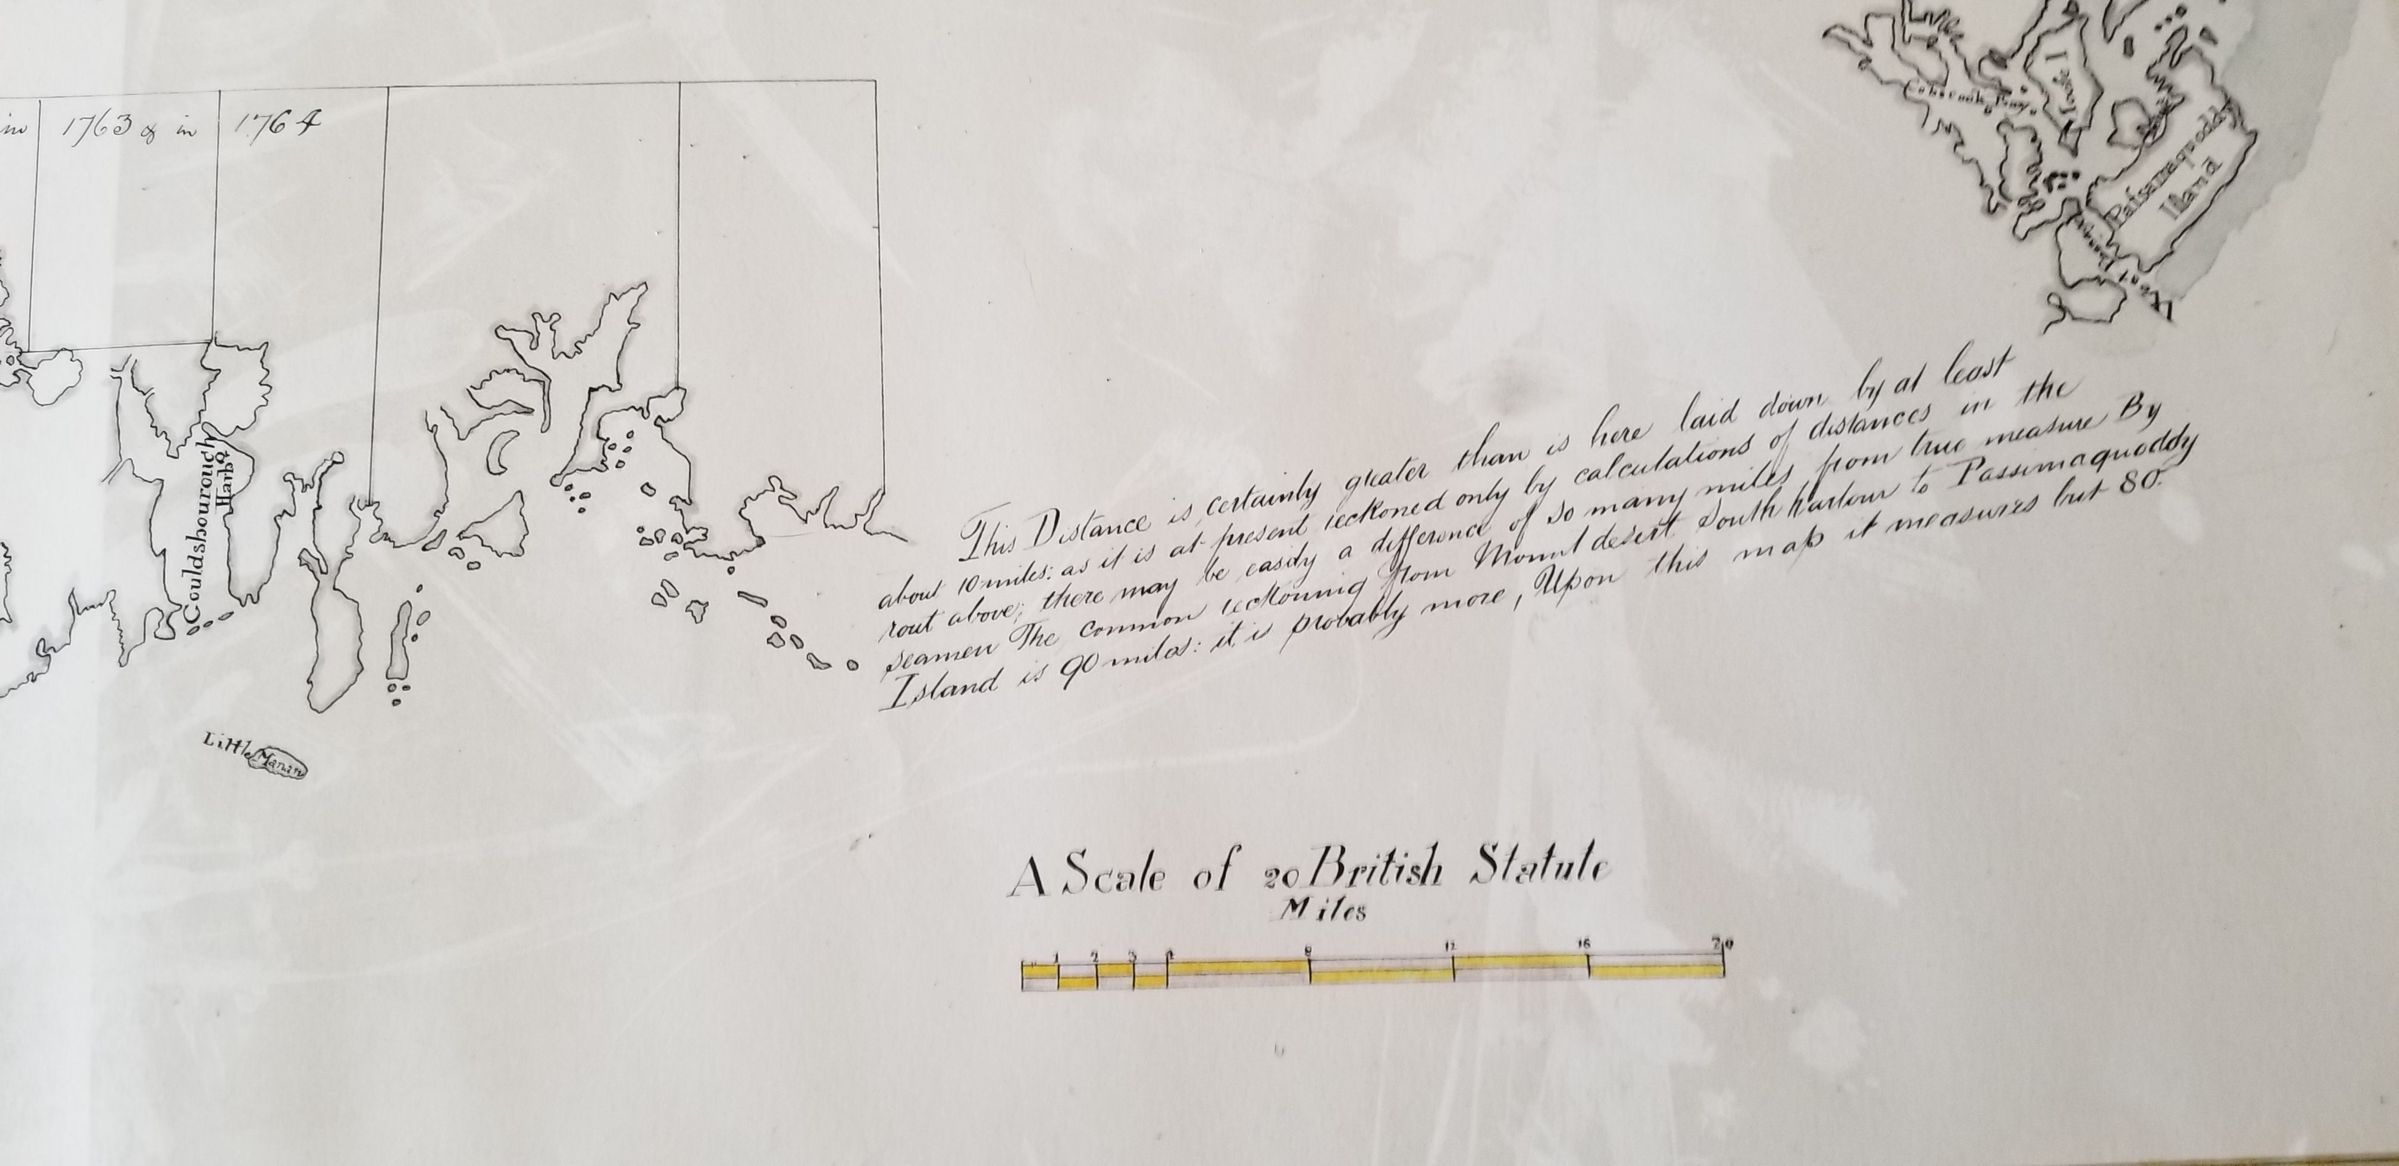 in 1763 & in 1764
Cobscook Bay
Passamaquoddy
Island
Gouldsbourough
Harbr
Little Manan
This Distance is certainly greater than is here laid down by at least
about 10 miles: as it is at present reckoned only by calculations of distances in the
rout above; there may be easily a difference of so many miles from true measure By
seamen The common reckouning from Mount desert South harbour to Passimaquoddy
Island is 90 miles: it is probably more, Upon this map it measures but 80.
A Scale of 20 British Statute
Miles
1 2 3 4 8 12 16 20